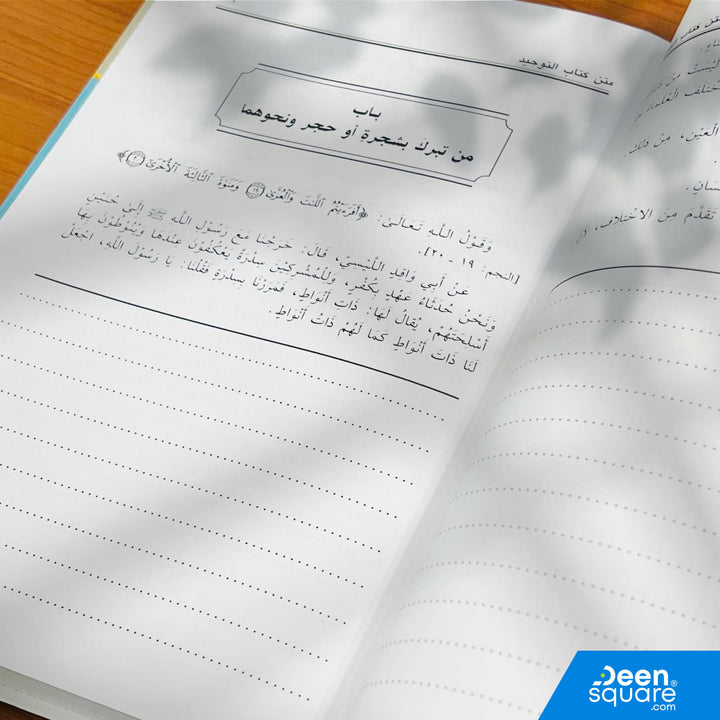 متن كتاب التوحيد
باب
من تبرك بشجرةٍ أو حجر ونحوهما
وَقَوْلُ اللهِ تَعَالَىٰ: ﴿أَفَرَءَيْتُمُ ٱللَّٰتَ وَٱلْعُزَّىٰ ١٩ وَمَنَوٰةَ ٱلثَّالِثَةَ ٱلْأُخْرَىٰ ٢٠﴾
[النجم: ١٩ - ٢٠].
عَنْ أَبِي وَاقِدٍ اللَّيْسِيِ، قَالَ: خَرَجْنَا مَعَ رَسُوْلِ اللهِ ﷺ إِلَىٰ حُنَيْنٍ
وَنَحْنُ حُدَثَاءُ عَهْدٍ بِكُفْرٍ، وَلِلْمُشْرِكِيْنَ سِدْرَةٌ يَعْكُفُوْنَ عِنْدَهَا وَيَنُوْطُوْنَ بِهَا
أَسْلِحَتَهُمْ، يُقَالُ لَهَا: ذَاتُ أَنْوَاطٍ، فَمَرَرْنَا بِسِدْرَةٍ فَقُلْنَا: يَا رَسُوْلَ اللهِ، اجْعَلْ
لَنَا ذَاتَ أَنْوَاطٍ كَمَا لَهُمْ ذَاتُ أَنْوَاطٍ
متن كتاب
لَيْسَتْ مِنْ
الْعَيْنِ، مِنْ ذَلِكَ
تَقَدَّمَ مِنَ الاخْتِلَافِ،
Deen
square®
.com